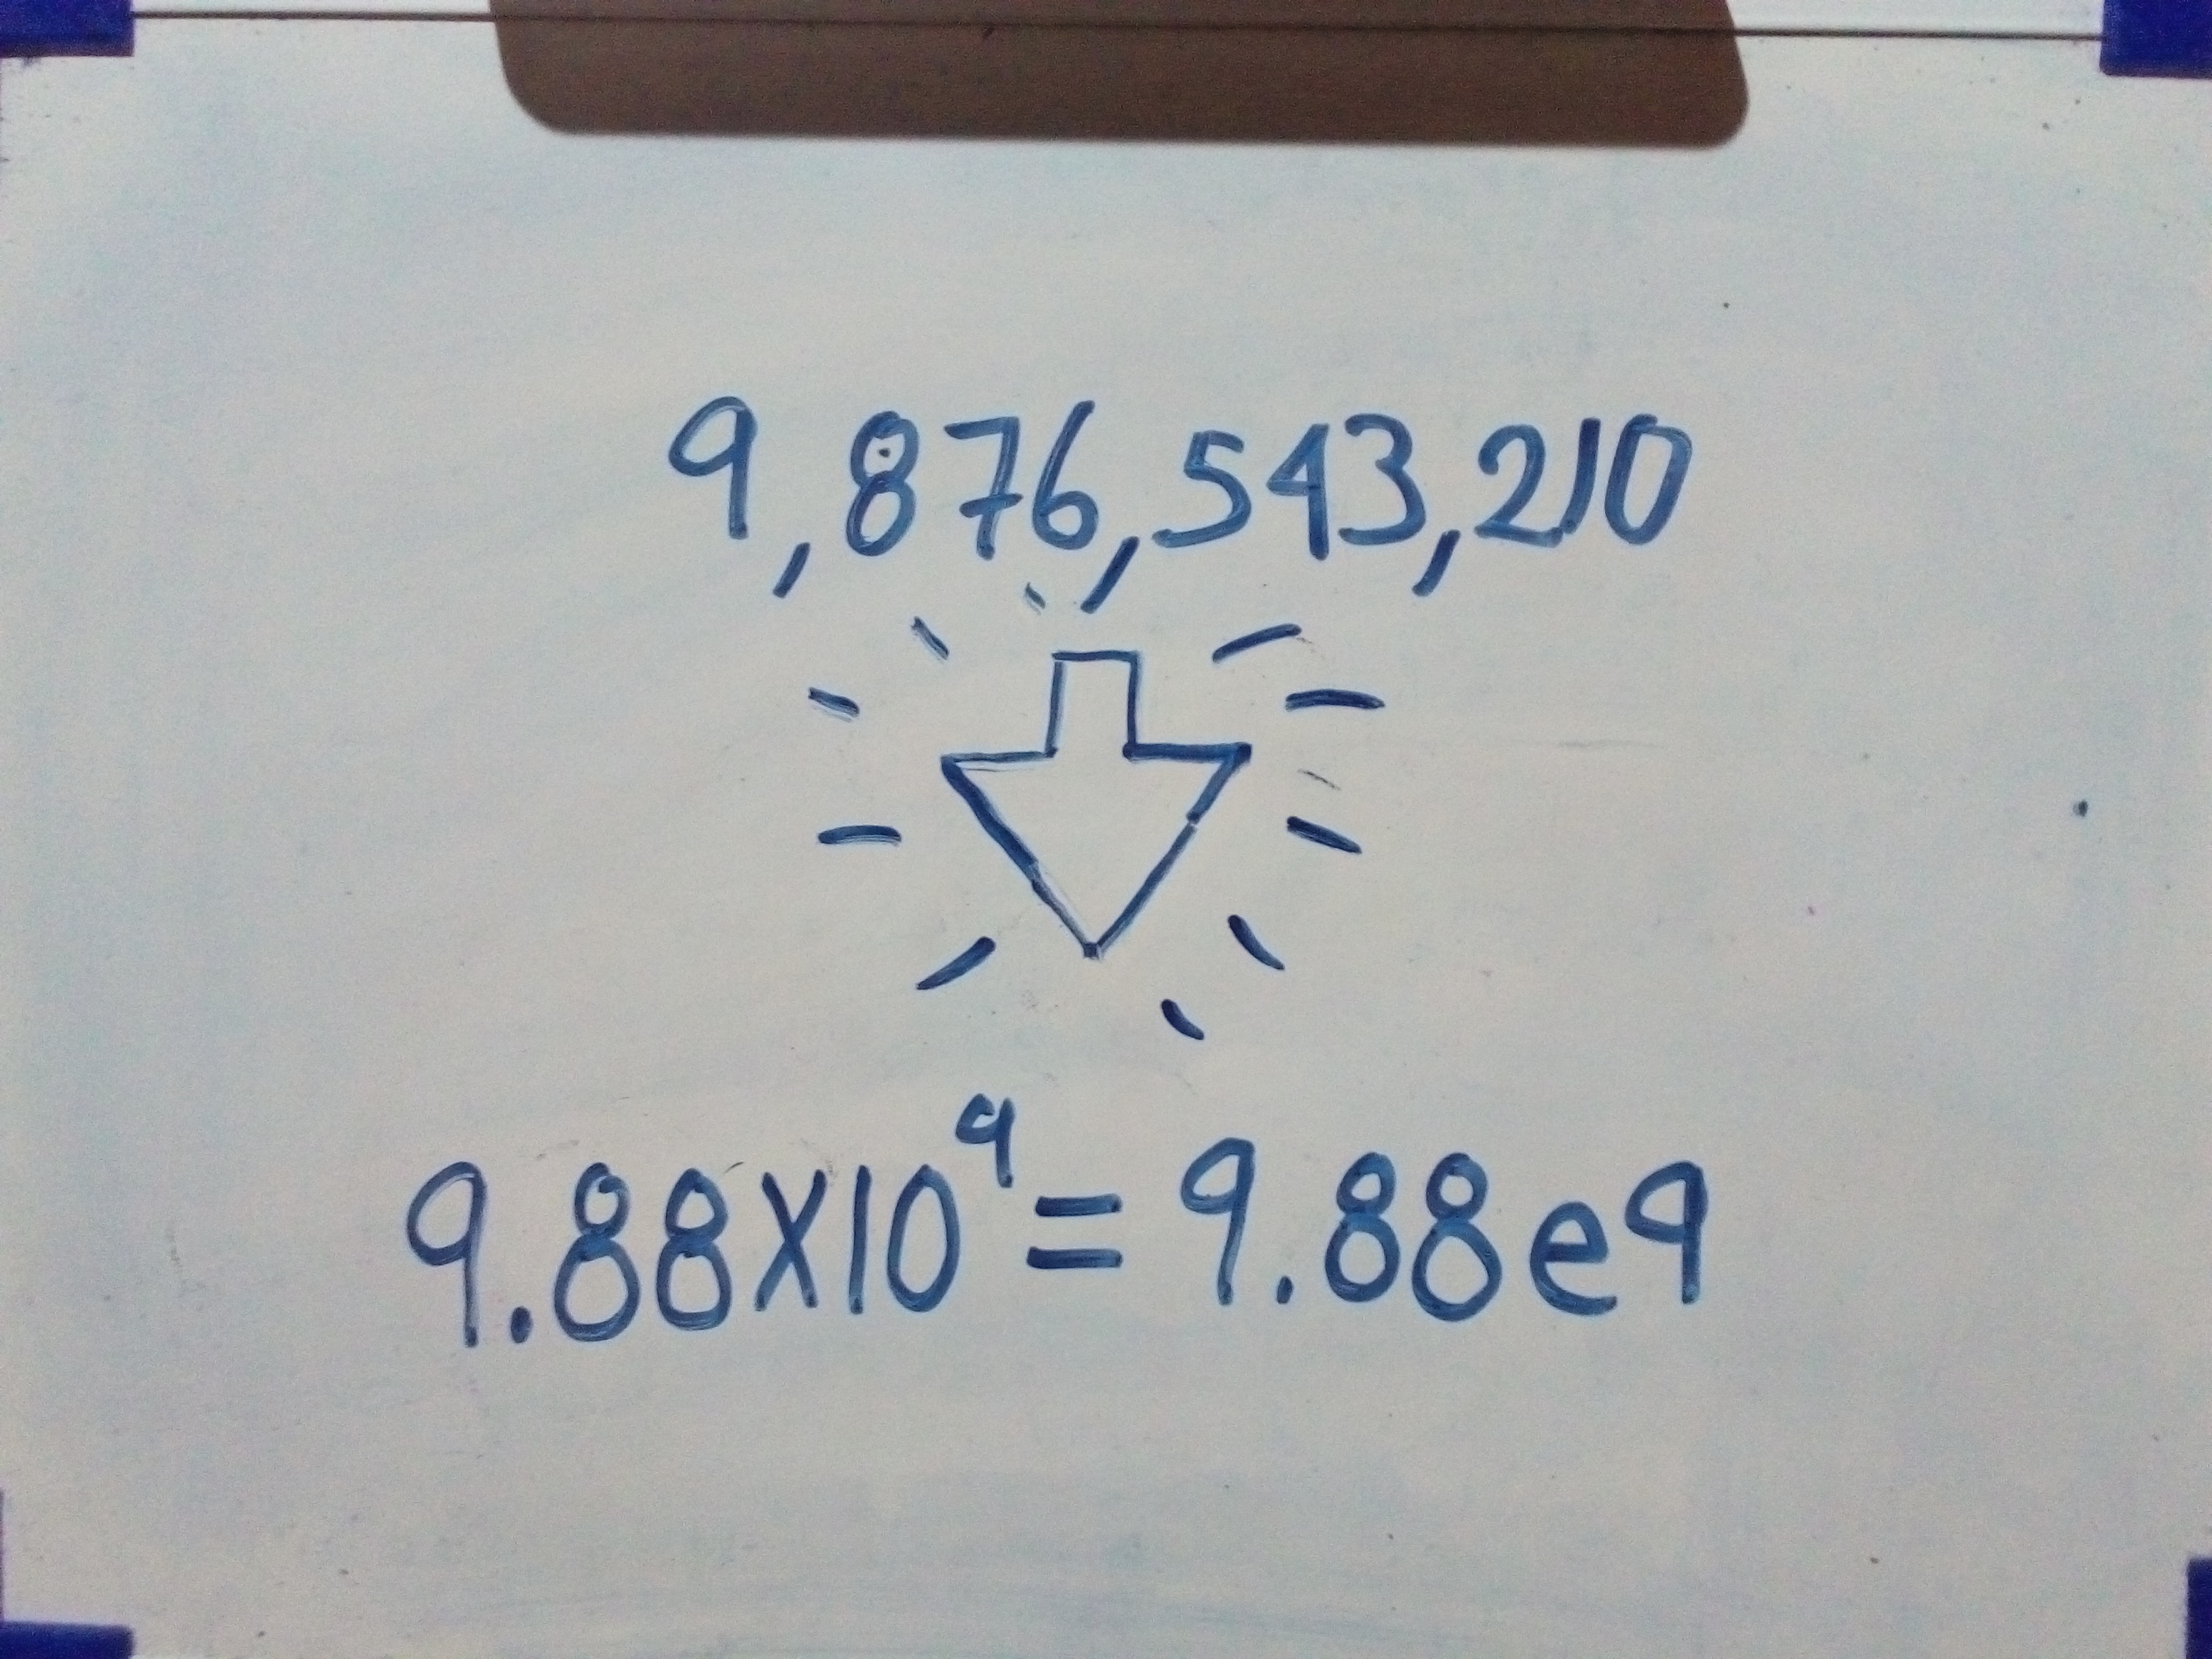 9,876,543,210
9.88X10⁹ = 9.88e9